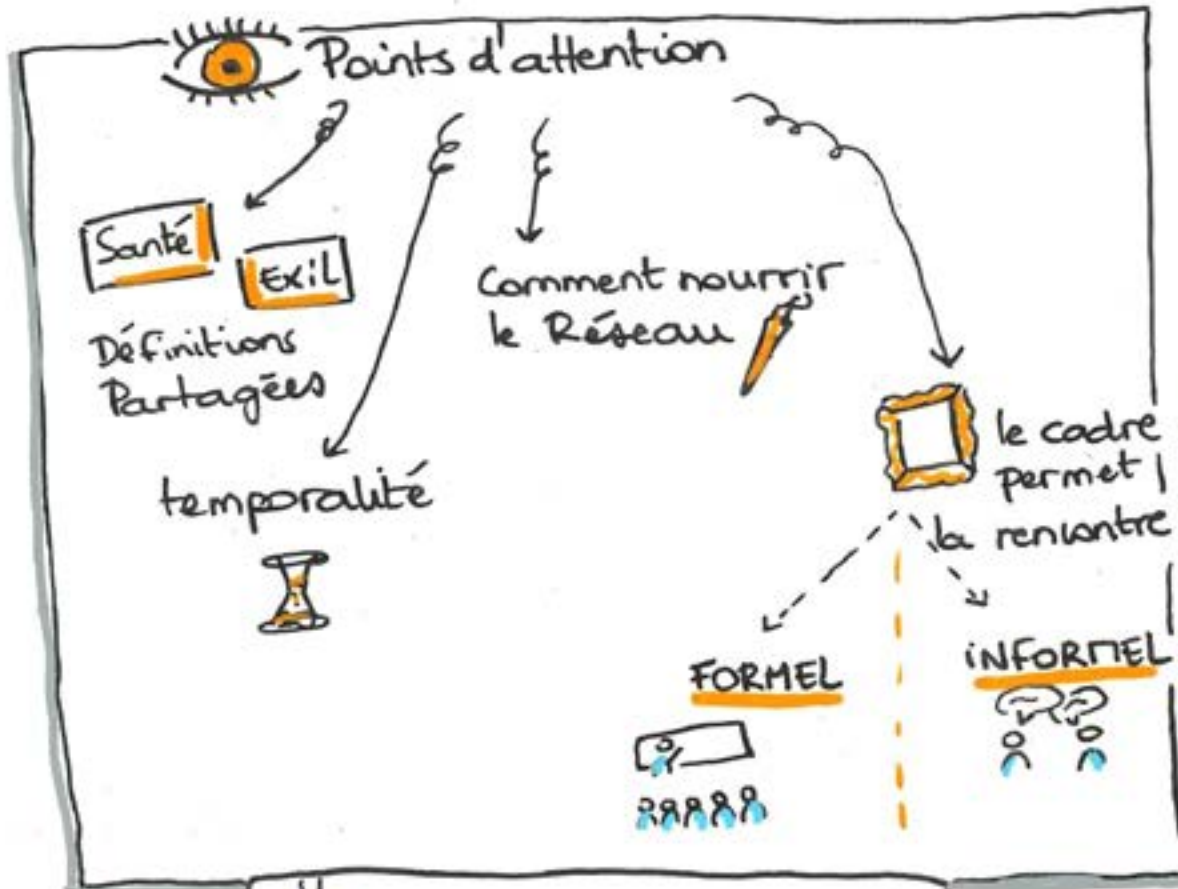 Points d'attention
Santé
EXiL
Définitions
Partagées
temporalité
Comment nourrir
le Réseau
le cadre
permet
la rencontre
FORMEL
iNFORMEL